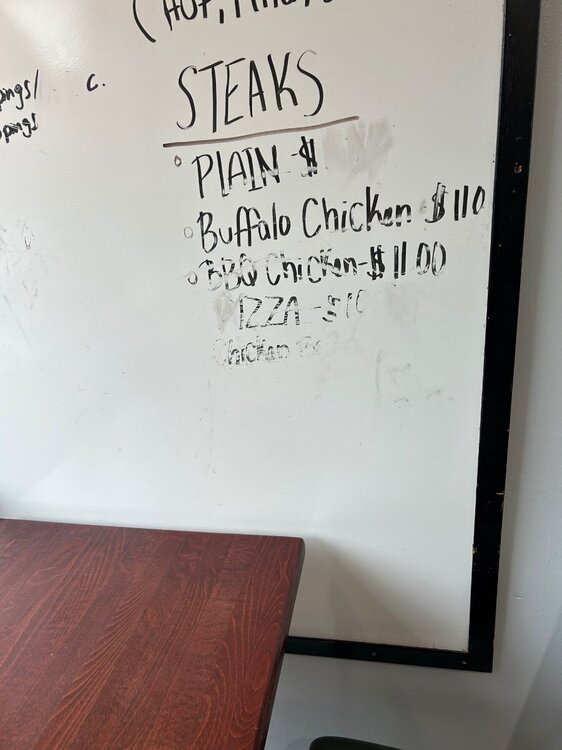 (HOT,
pings/
c.
pings
STEAKS
PLAIN - $
Buffalo Chicken - $110
BBQ Chicken - $11.00
PIZZA - $10
Chicken